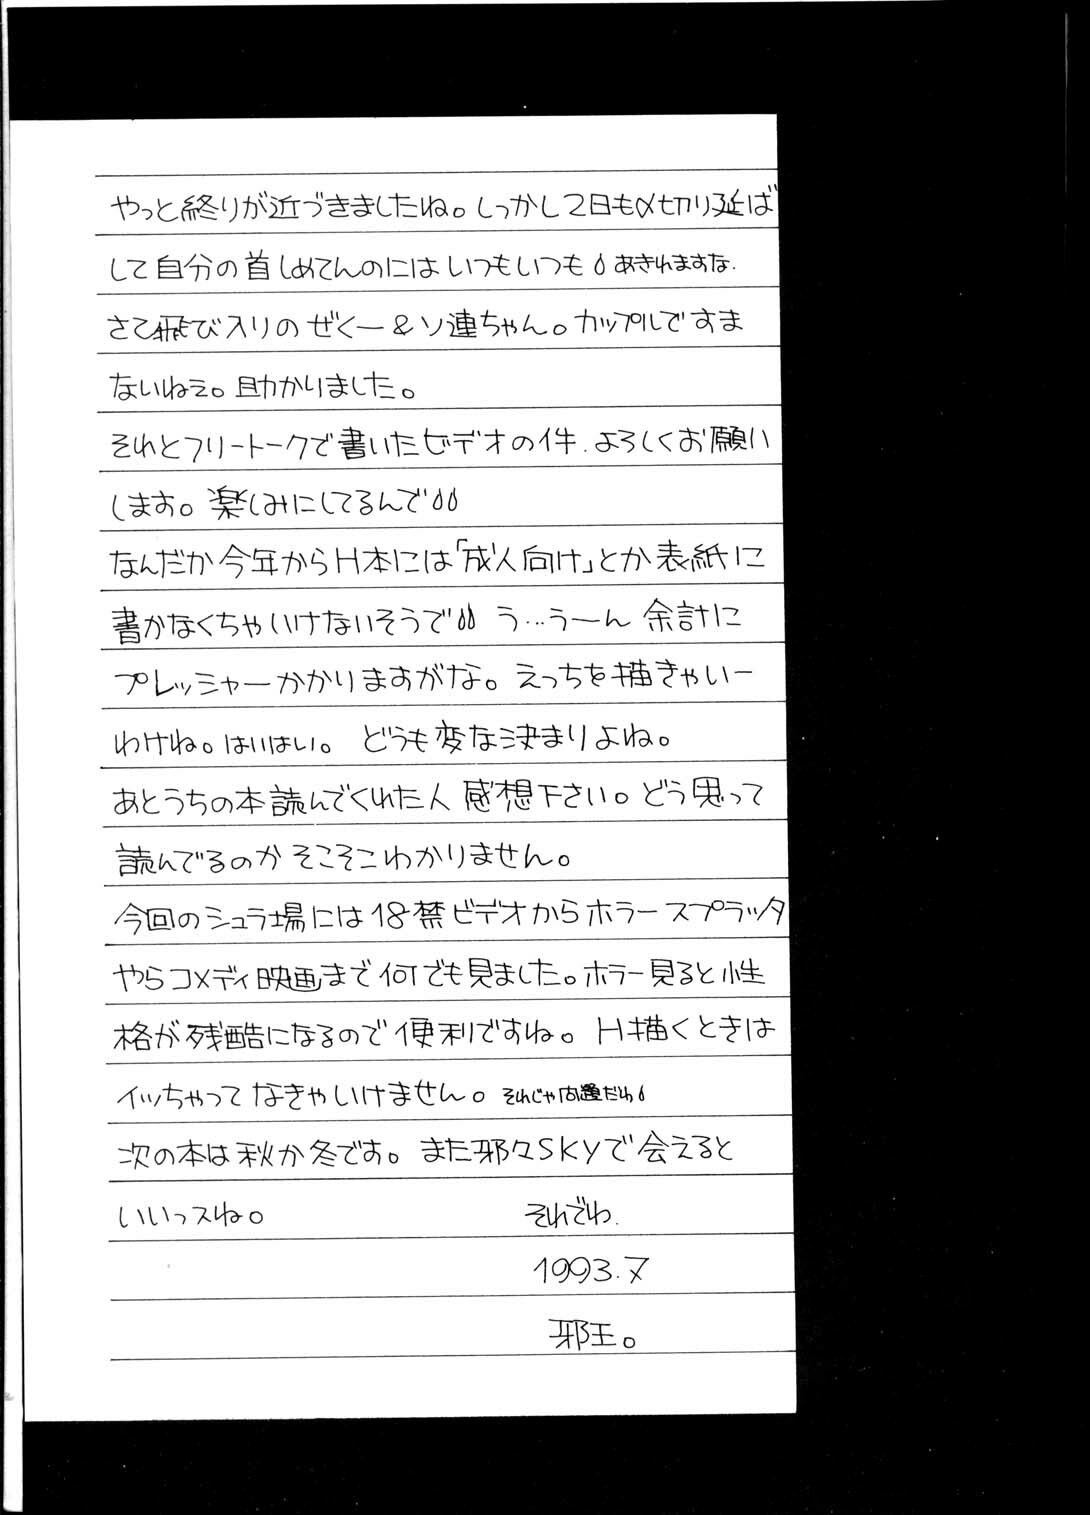 やっと終りが近づきましたね。しっかし2日も〆切り延ば
して自分の首しめてんのにはいつもいつも あきれますな.
さて飛び入りのぜくー&ソ連ちゃん。カップルですま
ないねぇ。助かりました。
それとフリートークで書いたビデオの件.よろしくお願い
します。楽しみにしてるんで
なんだか今年からH本には「成人向け」とか表紙に
書かなくちゃいけないそうで う…うーん 余計に
プレッシャーかかりますがな。えっちを描きゃいー
わけね。はいはい。 どうも変な決まりよね。
あとうちの本読んでくれた人 感想下さい。どう思って
読んでるのかそこそこわかりません。
今回のシュラ場には18禁ビデオからホラースプラッタ
やらコメディ映画まで何でも見ました。ホラー見ると性
格が残酷になるので便利ですね。H描くときは
イッちゃってなきゃいけません。それじゃ問題だわ
次の本は秋か冬です。また邪々SKYで会えると
いいっスね。 それでわ.
1993.7
邪王。